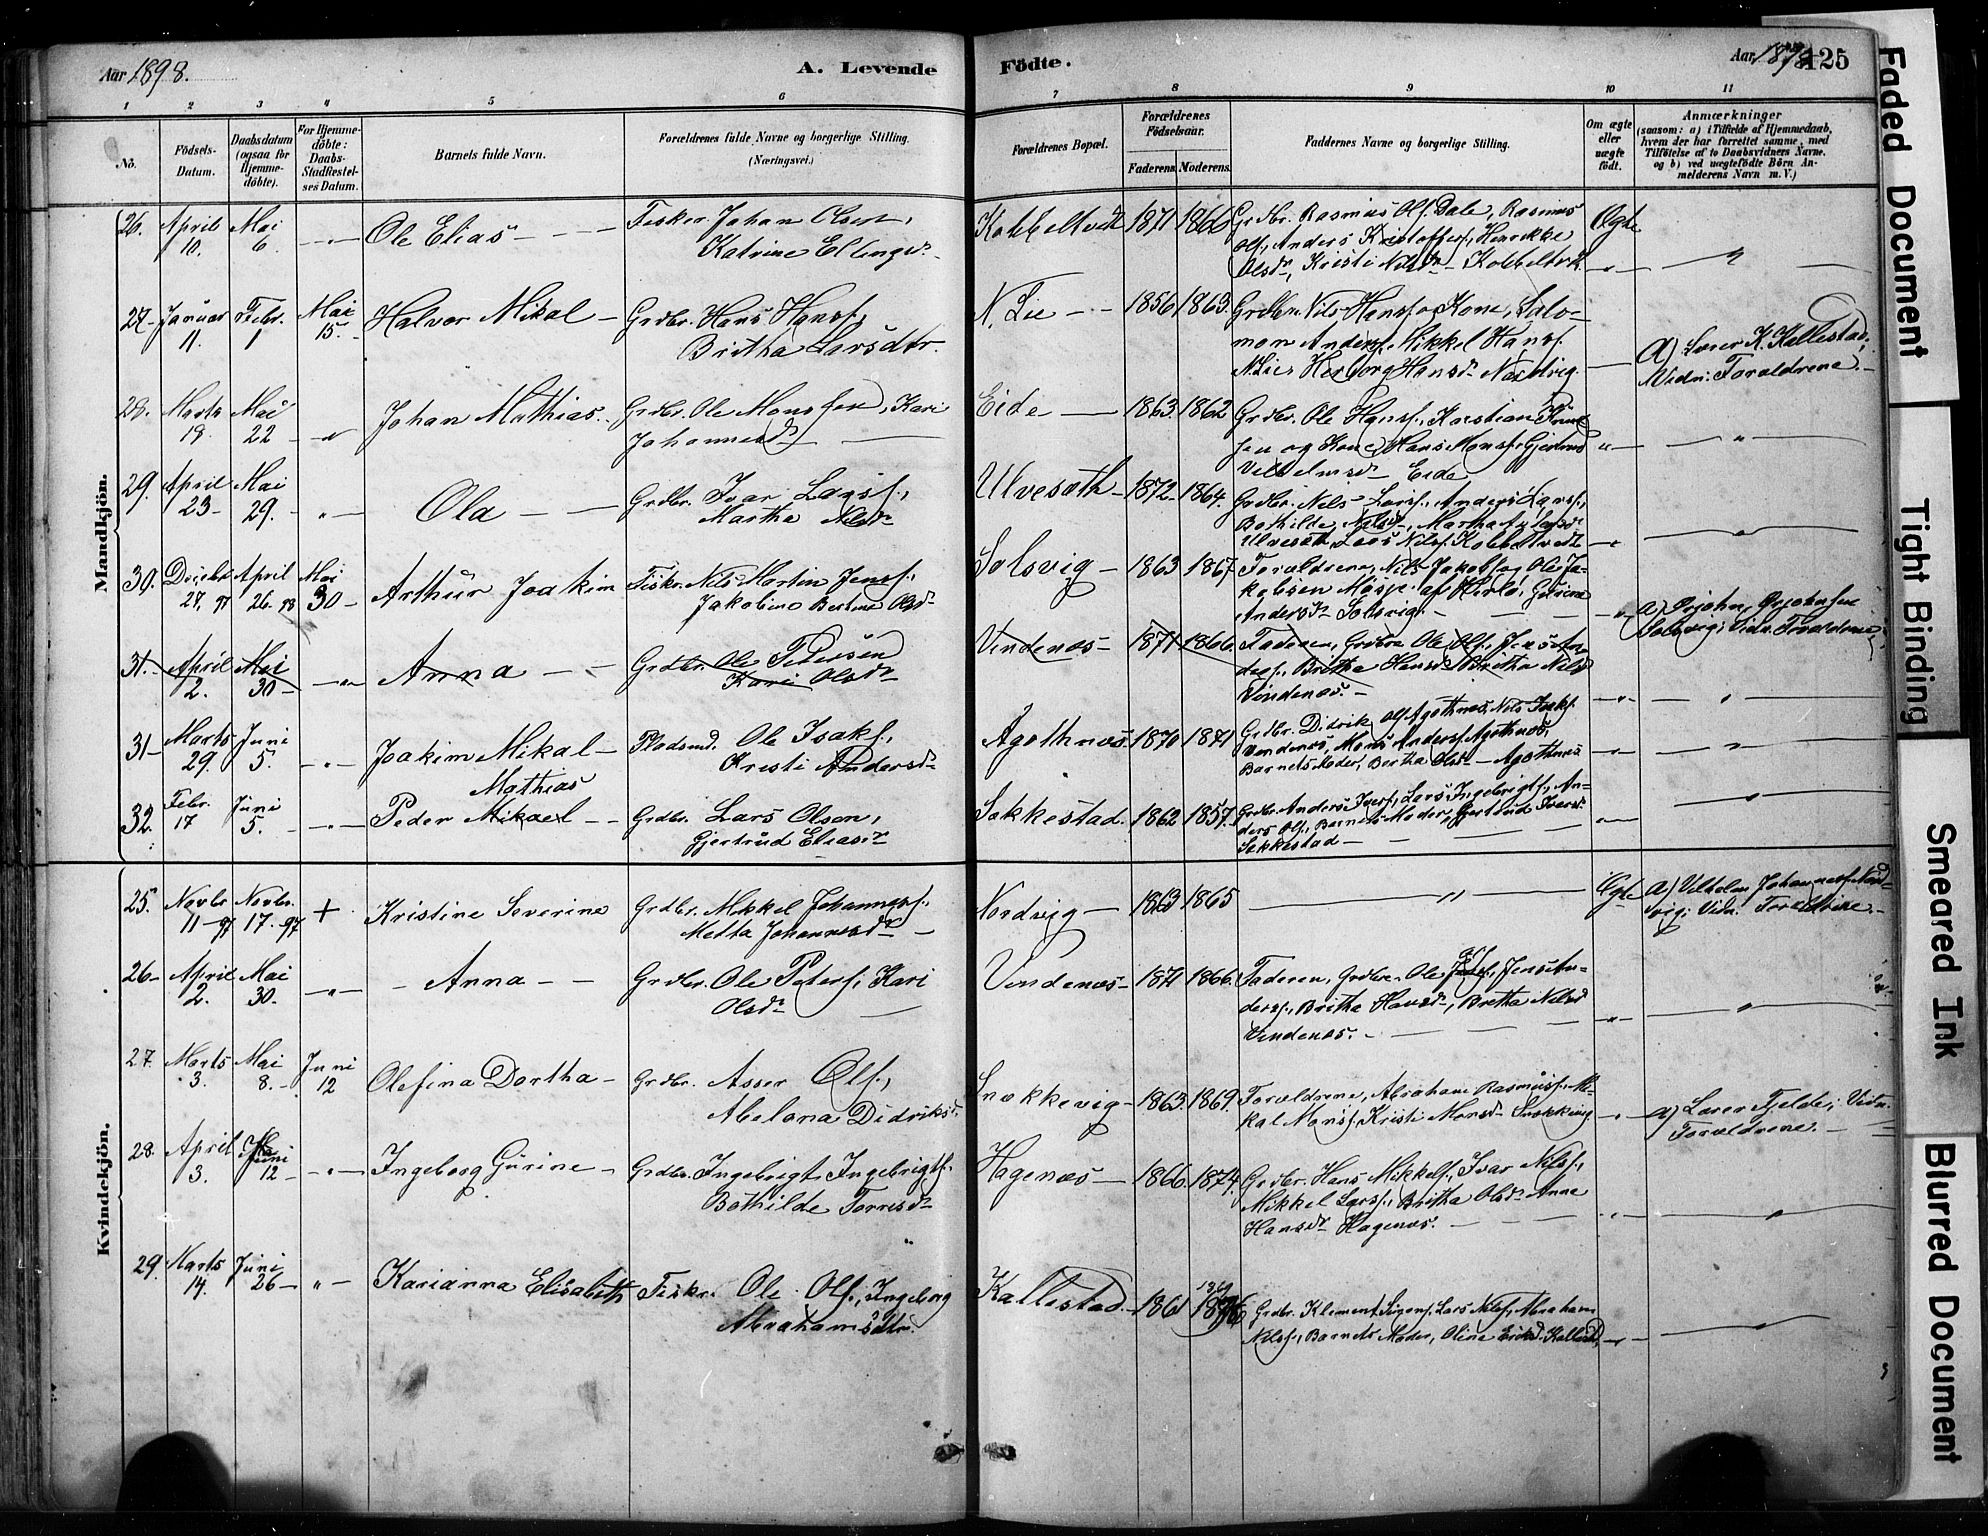 Aar 1898.
A. Levende
Födte.
Aar 1898
125
1 2 3 4 5 6
7 8 9 10 11
No.
Födsels-
Datum.
Daabsdatum
(ogsaa for
Hjemme-
döbte).
For Hjemme-
döbte:
Daabs-
Stadfæstel-
ses Datum.
Barnets fulde Navn.
Forældrenes fulde Navne og borgerlige Stilling.
(Næringsvei.)
Forældrenes Bopæl.
Forældrenes
Födselsaar.
Faderens.
Moderens.
Faddernes Navne og borgerlige Stilling.
Om ægte
eller
uægte
födt.
Anmærkninger
(saasom: a) i Tilfælde af Hjemmedaab,
hvem der har forrettet samme, med
Tilföielse af to Daabsvidners Navne,
og b) ved uægtefödte Börn An-
melderens Navn m. V.)
Mandkjön.
26. April 10. Mai 6 Ole Elias Fisker Johan Olsen,
Katrine Ellingsd.
Kobbeltvedt 1871 1866 Grdbr. Rasmus Olf. Dale, Rasmus
Olf., Anders Kristoffers., Henrikke
Olsdr., Kristi Nilsdr. Kobbeltvedt Ægte
27 Januar 11. Febr. 1 Mai 15. Halvor Mikal Grdbr. Hans Hansf.,
Britha Larsdtr.
N. Lie 1856 1863 Grdbr. Nils Hansf. og Kone, Salo-
mon Andersf., Mikkel Hansf.
N. Lie, Herborg Hansdr. Nordvig
a) Lærer K. Kallestad;
Vidn: Forældrene.
28. Marts 19. Mai 22 Johan Mathias Grdbr. Ole Monssen, Kari
Johannesdr
Eide 1863 1862 Grdbr. Ole Hansf., Karstian
sen og Kone, Hans Monsf., Gjertrud
Vilhelmsdr Eide
29. April 23 Mai 29. Ola Grdbr. Ivar Larsf.,
Martha Nilsdr
Ulvesæth 1872 1864. Grdbr. Nils Larsf., Anders Larsf.,
Bothilde Nilsdr, Martha Larsdr
Ulvesæth, Lars Nilsf. Kobbeltvedt
30. Decbr 27, 97 April 26. 98 Mai 30 Arthur Joakim Fisker. Nils Martin Jensf.,
Jakobine Bertine Olsdr
Solsvig 1863 1867 Forældrene, Nils Jakobf. og Ole Ja-
kobsen Møsje af Herlø, Gurine
Andersdr Solsvig.
a) Örjohn Örjohnsen
Solsvig; Vidn. Forældrene
31. April 2. Mai 30 Anna Grdbr. Ole Petersen
Kari Olsdr
Vindenæs 1871 1866. Faderen, Grdbre Ole Olf., Jens An-
dersf., Britha Hansdr, Britha Nilsdr
Vindenæs.
31 Marts 29. Juni 5. Joakim Mikal
Mathias
Pladsmd. Ole Isakf.,
Kristi Andersdr
Ågothnæs. 1870 1871 Grdbr. Didrik Olf. Agothnæs, Nils Isakf.
Vindenæs, Mons Andersf. Agothnæs,
Barnets Moder, Bertha Olsdr Agothnæs
32. Febr. 17 Juni 5. Peder Mikael Grdbr. Lars Olson,
Gjertrud Eliasdr
Sækkestad. 1862 1857. Grdbr. Anders Iverf., Lars Ingebrigtf., An-
ders Olf., Barnets Moder, Gjertrud Iversdr
Sekkestad
Kvindekjön.
25. Novbr 11-97 Novbr. 17. 97 + Kristine Severine Grdbr. Mikkel Johannesf.,
Metta Johannesdr
Nordvig 1863 1865 Ægte a) Vilhelm Johannesf. Nord-
vig; Vidn. Forældrene.
26 April 2. Mai 30. Anna Grdbr. Ole Petersf., Kari
Olsdr
Vindenæs 1871 1866. Faderen, Grdbre. Ole Olf., Jens An-
dersf., Britha Hansdr, Britha Nilsdr
Vindenæs.
27 Marts 3. Mai 8. Juni 12 Olefina Dortha Grdbr. Asser Olf.,
Abelona Didriksdr.
Snækkevig 1863 1869. Forældrene, Abraham Rasmusf., Mi-
kal Monsf., Kristi Monsdr Snækkevig
a) Lærer Fjelde; Vidn.
Forældrene.
28. April 3. Juni 12 Ingeborg Gurine Grdbr. Ingebrigt Ingebrigtf.
Bothilde Torresdr
Hagenæs 1866. 1874. Grdbr. Hans Mikkelf., Ivar Nilsf.,
Mikkel Larsf., Britha Olsdr, Anne
Hansdr Hagenæs.
29. Marts 14. Juni 26 Karianna Elisabeth Fisker. Ole Olf., Ingeborg
Abrahamsdtr.
Kallestad 1861 Grdbr. Klement Sjursf., Lars Nilsf., Abraham
Nilsf., Barnets Moder, Oline Eriksd. Kallestad
Faded Document
Tight Binding
Smeared Ink
Blurred Document